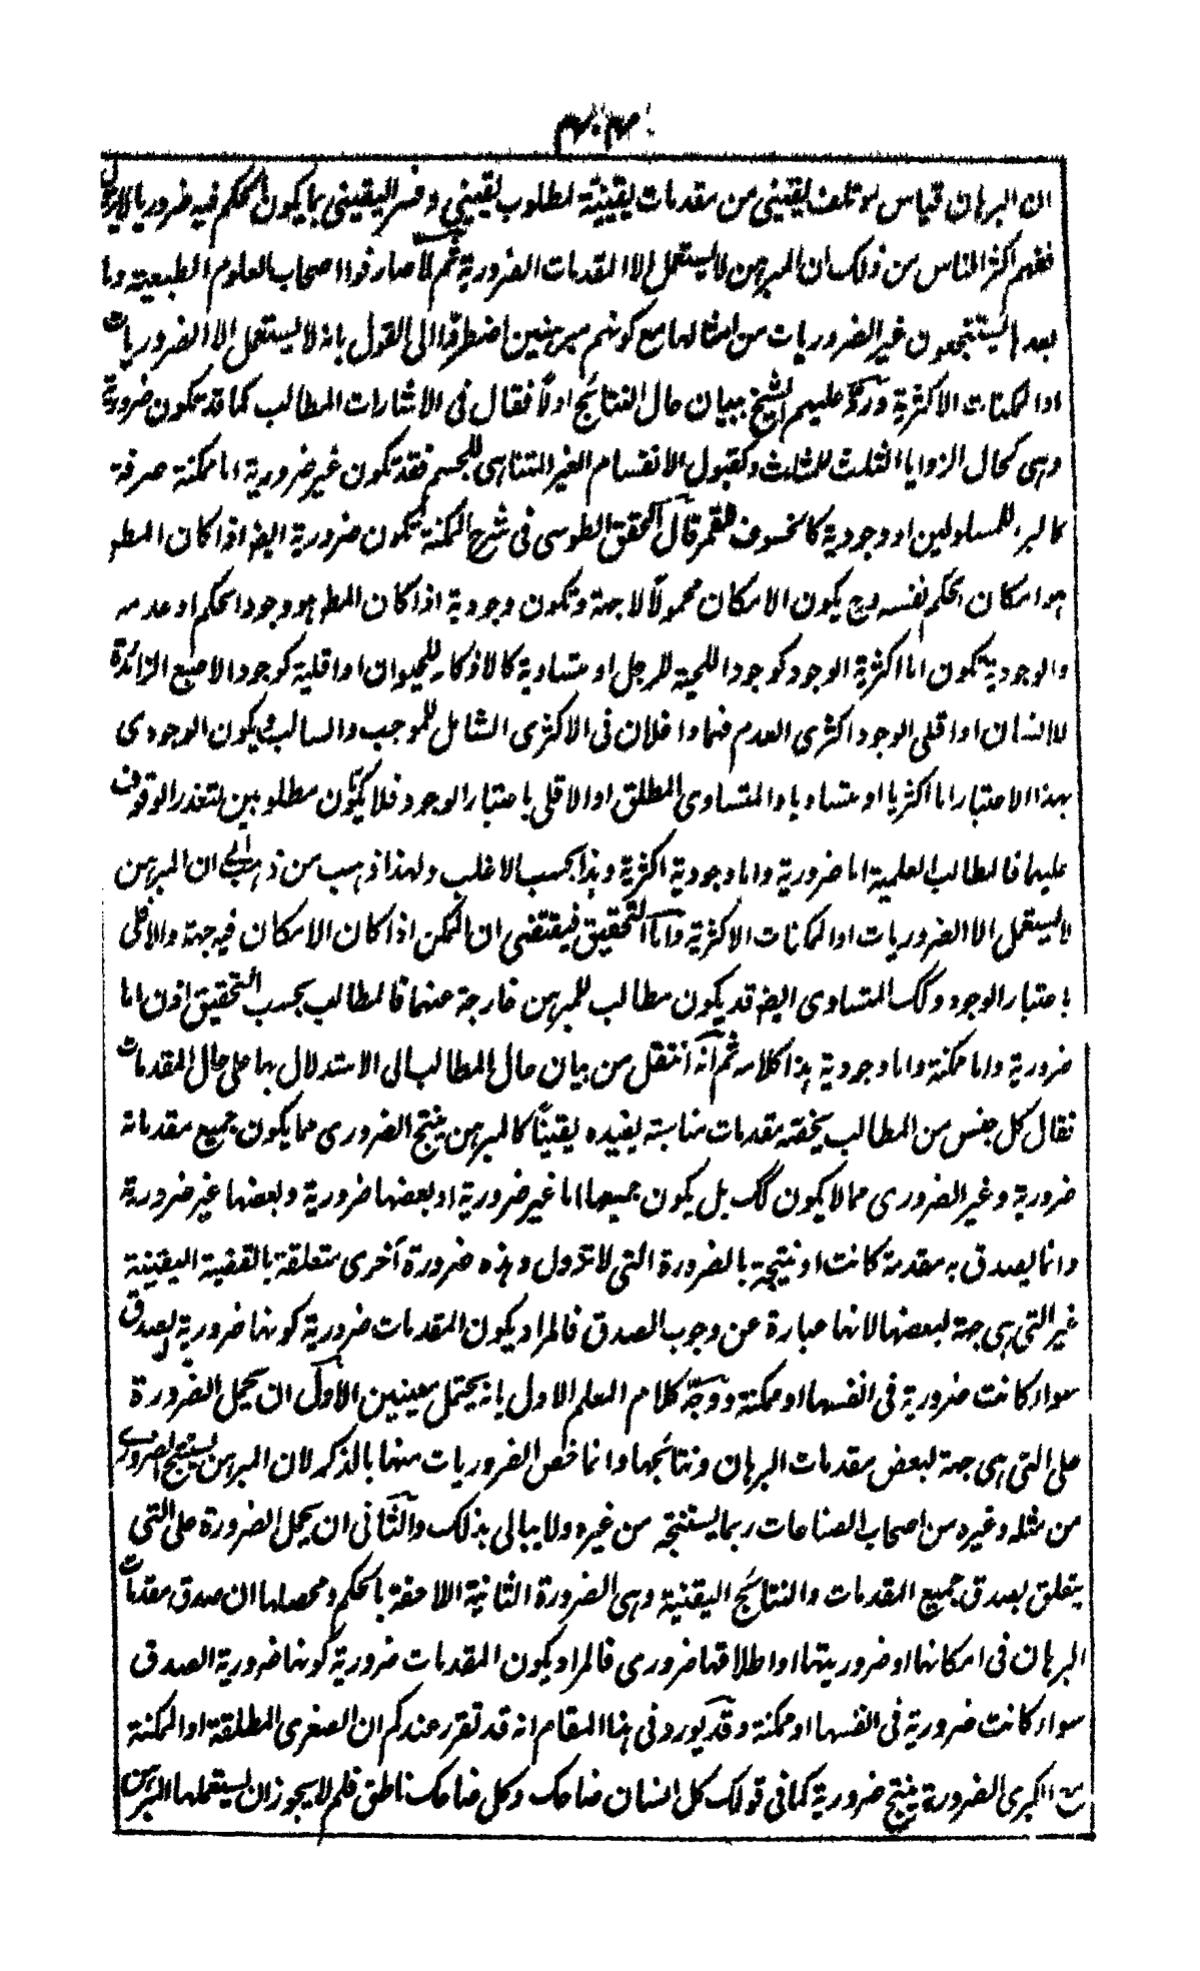 ان البرهان قياس مؤتلف يقيني من مقدمات يقينية لمطلوب يقيني وفسر اليقيني بما يكون الحكم فيه ضروريا لايزول
ففهم اكثر الناس من ذلك ان المبرهن لا يستعمل الا المقدمات الضرورية ثم لما صادفوا اصحاب العلوم الطبيعية وما
بعدها يستنتجون غير الضروريات من امثالها مع كونهم مبرهنين اضطروا الى القول بانه لا يستعمل الا الضروريات
او الممكنات الاكثرية ورد عليهم الشيخ ببيان حال النتائج اولا فقال في الاشارات المطالب كما قد تكون ضرورية
وهي كحال الزوايا الثلث للمثلث وكقبول الانقسام الغير المتناهي للجسم فقد تكون غير ضرورية اما ممكنة صرفة
كالبرء للمسلولين او وجودية كالخسوف للقمر قال المحقق الطوسي في شرح الممكنة تكون ضرورية ايضا اذا كان المطلو
هو امكان الحكم نفسه وح يكون الامكان محمولا لا جهة وتكون وجودية اذا كان المط هو وجود الحكم او عدمه
والوجودية تكون اما اكثرية الوجود كوجود اللحية للرجل او متساوية كالاذكار للحيوان او اقلية كوجود الاصبع الزائدة
للانسان او اقلى الوجود اكثرى العدم فهما داخلان في الاكثرى الشامل للموجب والسالب ويكون الوجودى
بهذا الاعتبار اما اكثريا او متساويا والمتساوى المطلق او الاقلى باعتبار الوجود فلا يكون مطلوبين لتعذر الوقوف
عليهما فالمطالب العلمية اما ضرورية واما وجودية اكثرية وهذا بحسب الاغلب ولهذا ذهب من ذهب الى ان المبرهن
لا يستعمل الا الضروريات او الممكنات الاكثرية واما التحقيق فيقتضى ان الممكن اذا كان الامكان فيه جهة والاقلى
باعتبار الوجود وكك المتساوى ايضا قد يكون مطالب للمبرهن خارجة عنهما فالمطالب بحسب التحقيق اذن اما
ضرورية واما ممكنة واما وجودية هذا كلامه ثم انه انتقل من بيان حال المطالب الى الاستدلال بها على حال المقدمات
فقال كل جنس من المطالب يخصه مقدمات مناسبة يفيده يقينا كالمبرهن ينتج الضرورى مما يكون جميع مقدماته
ضرورية وغير الضرورى مما لا يكون كك بل يكون جميعها اما غير ضرورية او بعضها ضرورية وبعضها غير ضرورية
وانما يصدق به مقدمة كانت او نتيجة بالضرورة التى لا تزول وهذه ضرورة اخرى متعلقة بالقضية اليقينية
غير التى هى جهة لبعضها لانها عبارة عن وجوب الصدق فالمراد يكون المقدمات ضرورية كونها ضرورية لصدق
سواء كانت ضرورية في انفسها او ممكنة ووجه كلام المعلم الاول بانه يحتمل معينين الاول ان يحمل الضرورة
على التى هى جهة لبعض مقدمات البرهان ونتائجها وانما خص الضروريات منها بالذكر لان المبرهن يستنتج الضرورى
من مثله وغيره من اصحاب الصناعات ربما يستنتجه من غيره ولا يبالى بذلك والثانى ان يحمل الضرورة على التى
يتعلق بصدق جميع المقدمات والنتائج اليقنية وهى الضرورة الثانية اللاحقة بالحكم ومحصلها ان صدق مقدمات
البرهان في امكانها او ضروريتها او اطلاقها ضرورى فالمراد يكون المقدمات ضرورية كونها ضرورية الصدق
سواء كانت ضرورية في انفسها او ممكنة وقد يورد في هذا المقام انه قد تقرر عندكم ان الصغرى المطلقة او الممكنة
مع الكبرى الضرورية ينتج ضرورية كما في قولك كل انسان ضاحك وكل ضاحك ناطق فلم لا يجوز ان يستعملها المبرهن